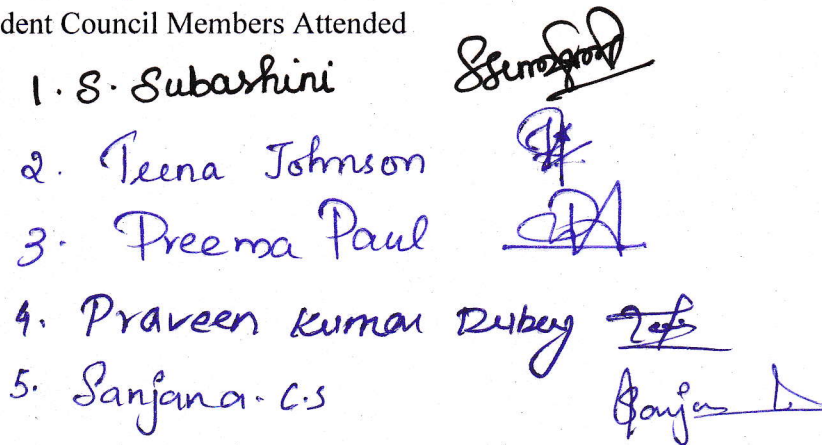 dent Council Members Attended
1. S. Subashini
2. Teena Johnson
3. Preema Paul
4. Praveen Kumar Dubey
5. Sanjana. C.S